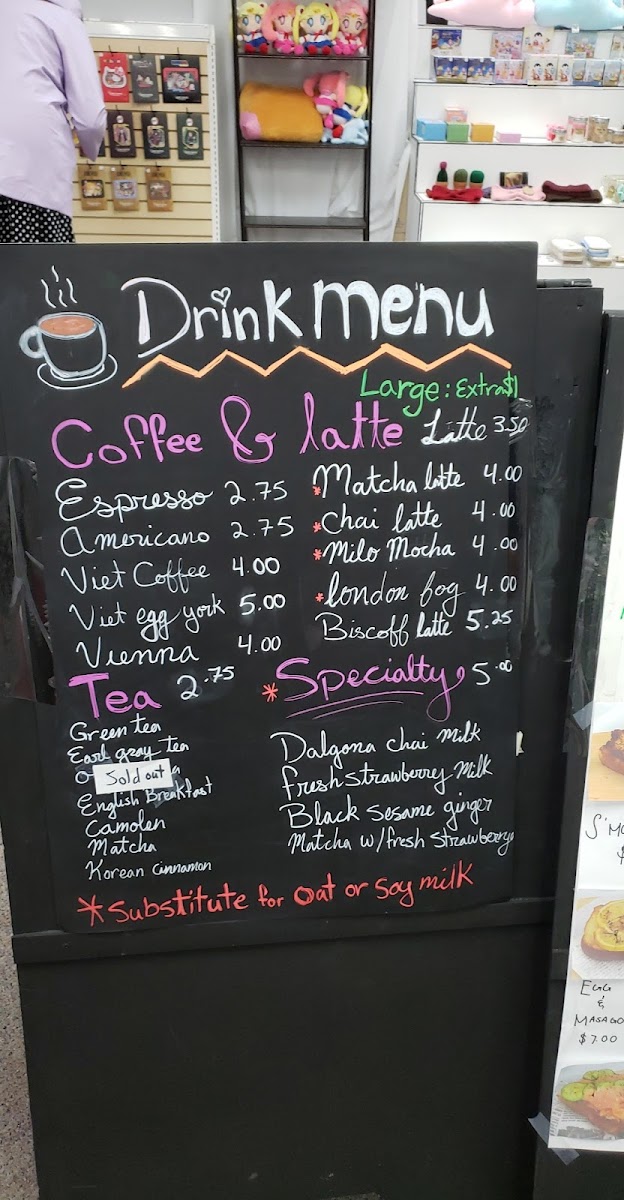 Drink menu
Large: Extra $1
Coffee & latte
Latte 3.50
Espresso 2.75
Americano 2.75
Viet Coffee 4.00
Viet egg york 5.00
Vienna 4.00
*Matcha latte 4.00
*chai latte 4.00
*Milo Mocha 4.00
*london fog 4.00
Biscoff latte 5.25
Tea 2.75
Green tea
Earl gray tea
Sold out
English Breakfast
Camolen
Matcha
Korean cinnamon
*Specialty 5.00
Dalgona chai milk
fresh strawberry milk
Black sesame ginger
Matcha w/fresh strawberry
*Substitute for oat or soy milk
S'MO
$
EGG
&
MASAGO
$7.00